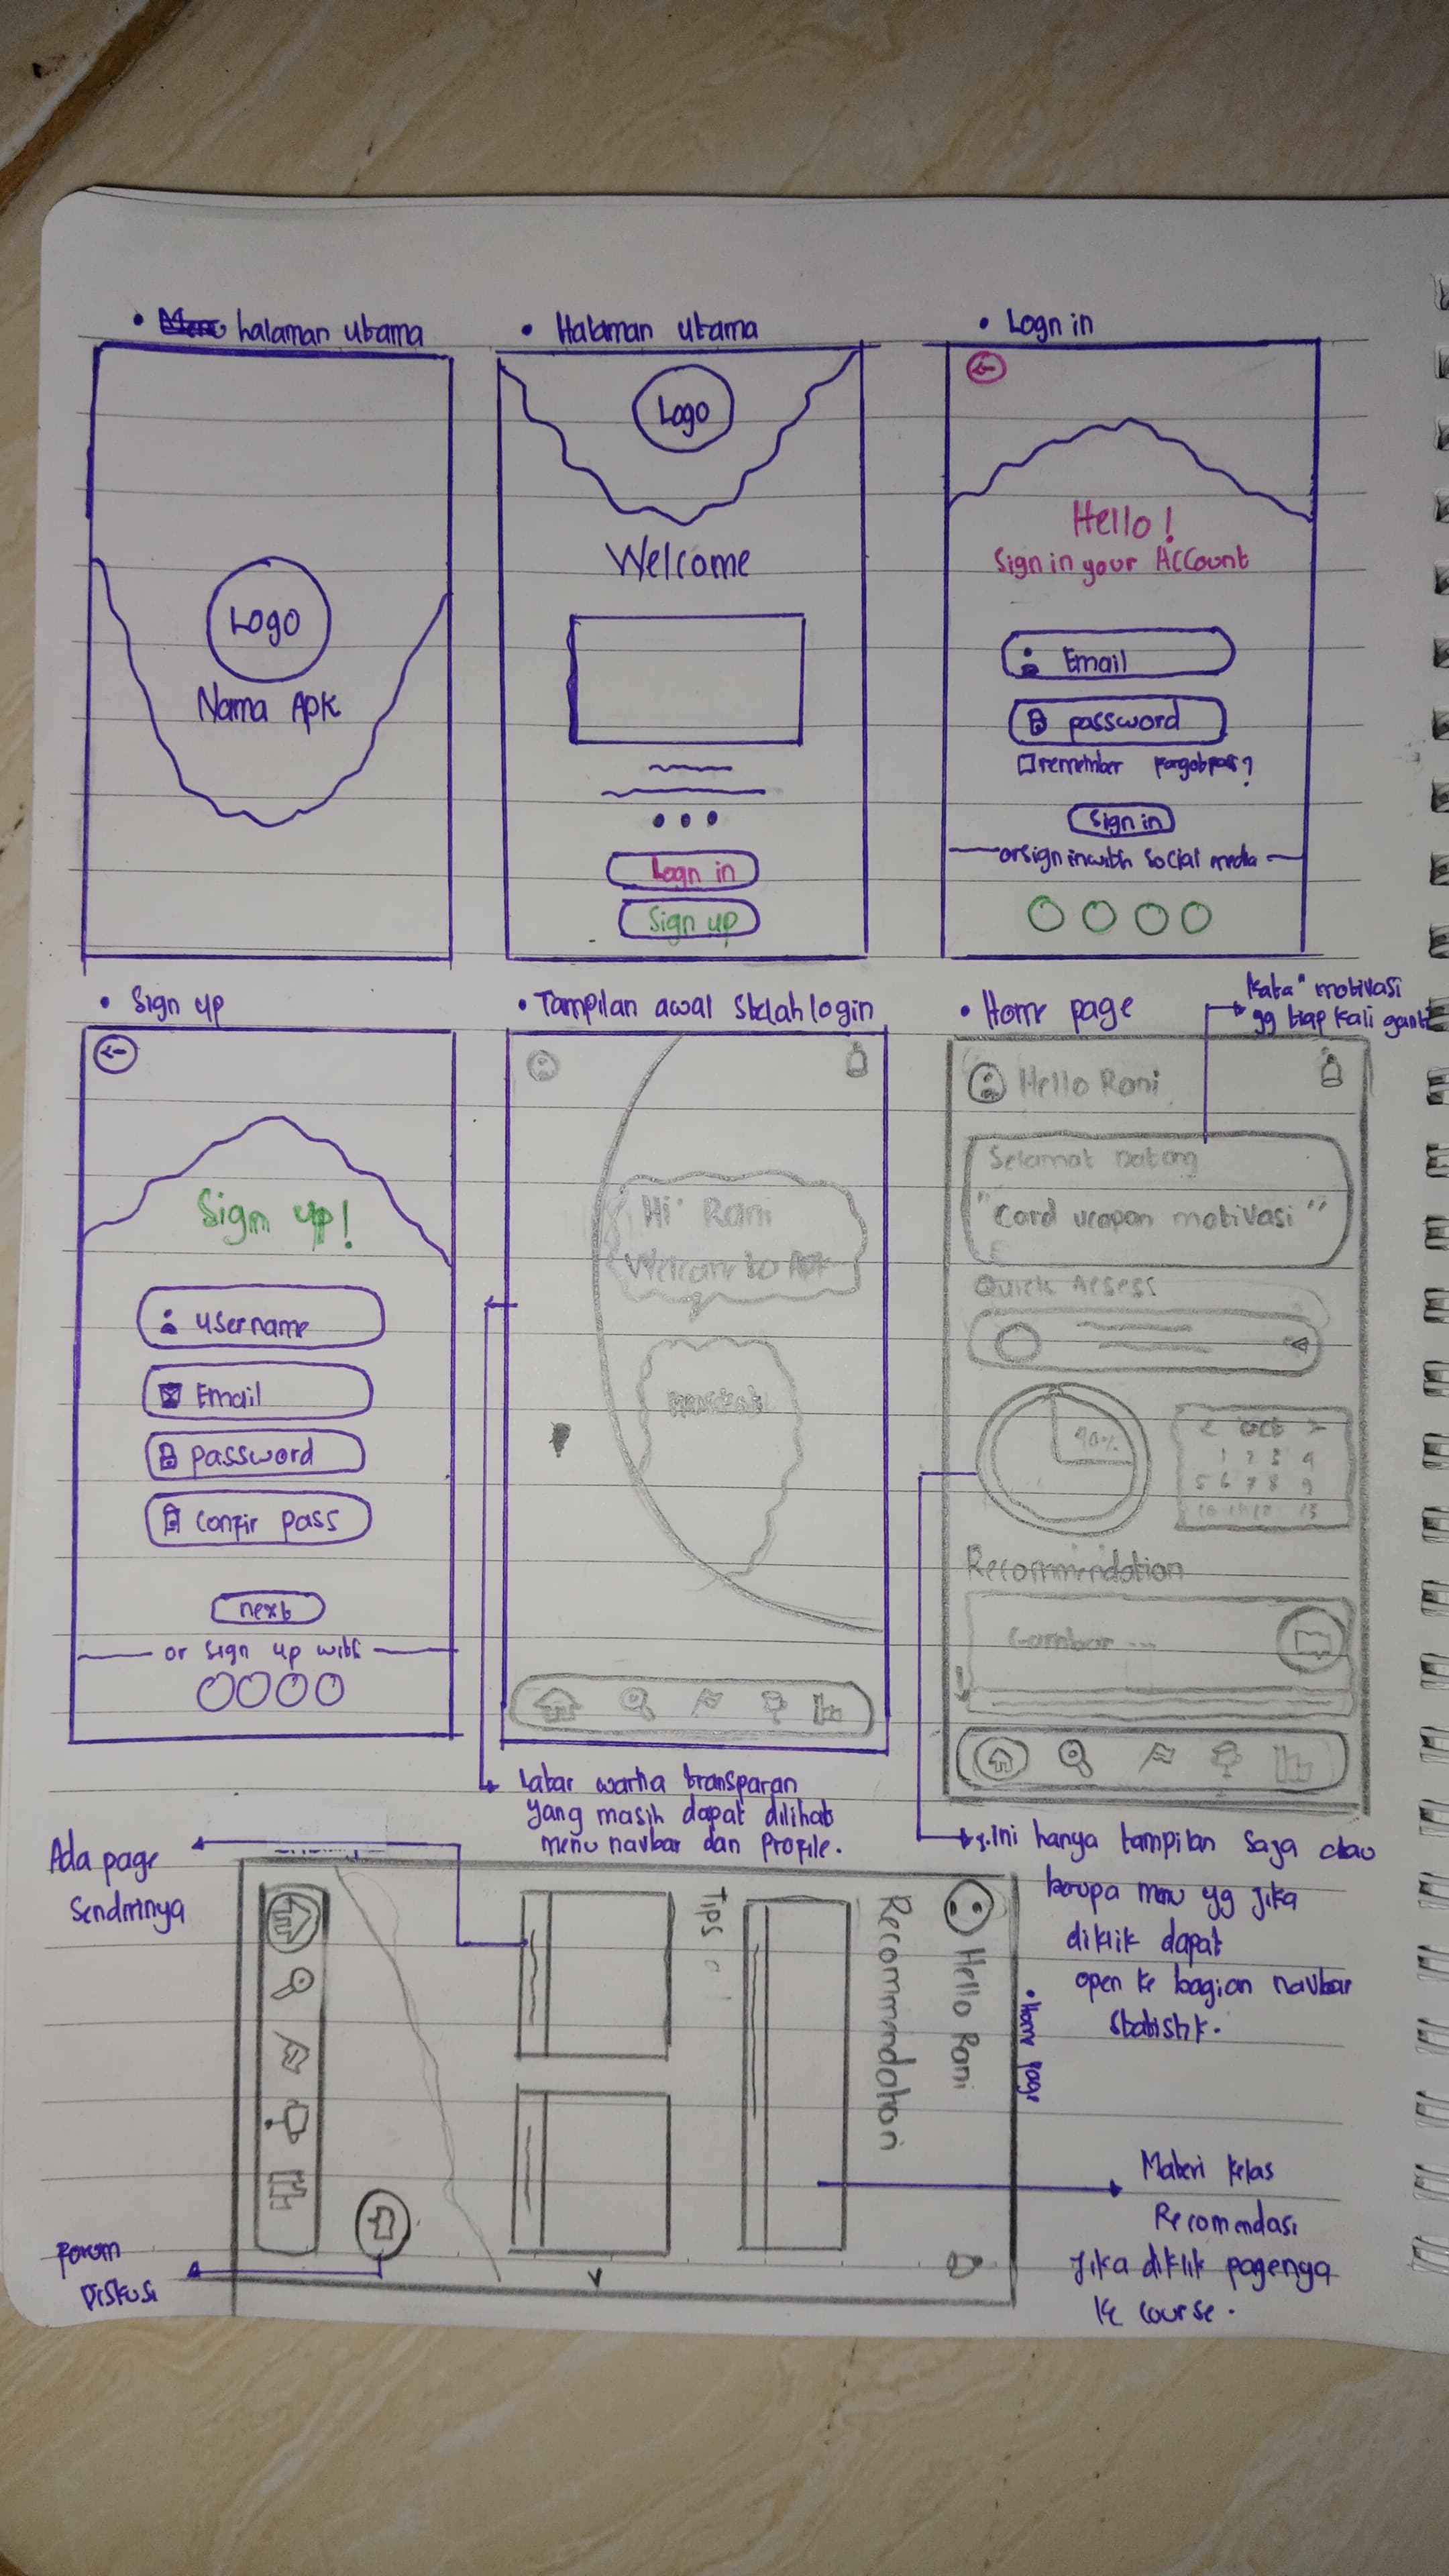 • halaman utama
Logo
Nama Apk
• Halaman utama
Logo
Welcome
Login in
Sign up
• Login in
Hello!
Sign in your Account
Email
password
remember forgot pass?
Sign in
or sign in with social media
• Sign up
Sign up!
username
Email
password
confir pass
next
or sign up with
• Tampilan awal stelah login
Hi' Rani
Welcome to Apk
Latar warna transparan
yang masih dapat dilihat
menu navbar dan Profile.
• Home page
Kata" motivasi
yg tiap kali ganti
Hello Rani
Selamat Datang
"Card ucapan motivasi"
Quick Acsess
90%
< Oct >
1 2 3 4
5 6 7 8 9
10 11 12 13
Recommendation
Gambar ...
Ini hanya tampilan saja atau
berupa menu yg jika
diklik dapat
open ke bagian navbar
Statistik.
• Home page
Hello Rani
Recommendation
Tips
Ada page
Sendirinya
Forum
Diskusi
Materi Kelas
Recomendasi
Jika diklik pagenya
ke course.